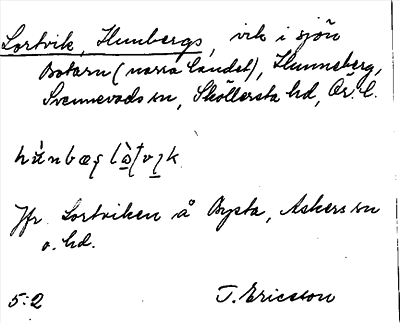 Lortvik, Hunbergs, vik i sjön
Botarn (norra landet), Hunneberg,
Svennevads sn, Sköllersta hd, Ör. l.
Jfr Lortviken å Bysta, Askers sn
o. hd.
5:2 T. Ericsson